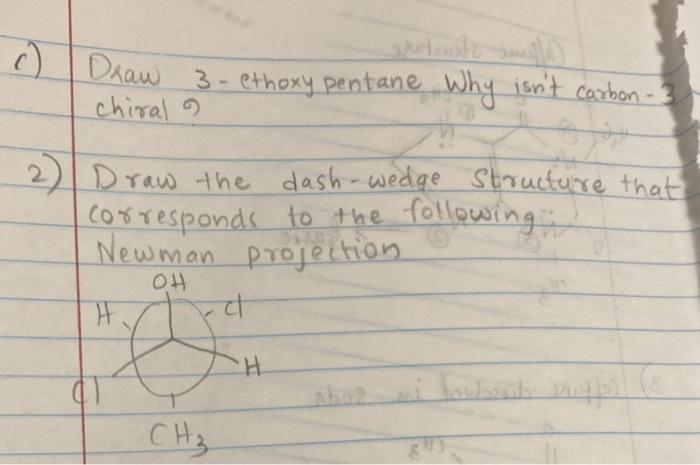 c) Draw 3-ethoxy pentane Why isn't carbon-3
chiral ?
2) Draw the dash-wedge structure that
corresponds to the following
Newman projection
OH
H Cl
H
Cl
CH3